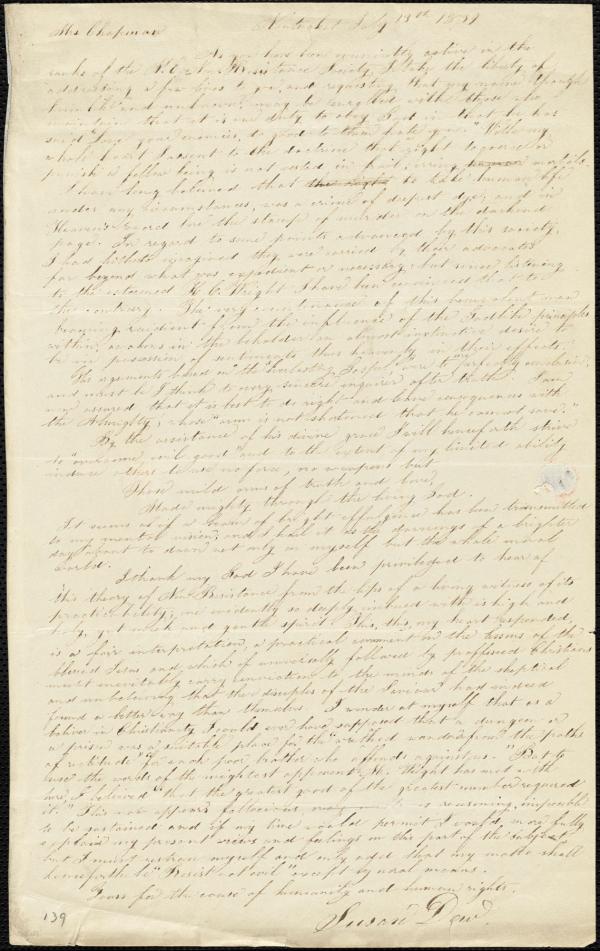 Mrs Chapman Nantucket July 13th 1839
As you have been eminently active in the
ranks of the N. E. Non Resistance Society, I take the liberty of
addressing a few lines to you, and requesting that my name though
humble and unknown, may be enrolled with those who
maintain that it is our duty to obey God in that he has
said "Love your enemies, do good to them hate you." With my
whole heart I assent to the doctrine that right to coerce or
punish a fellow being is not vested in frail, erring human mortals.
I have long believed that the right to take human life
under any circumstances, was a crime of deepest dye, and in
Heaven's record bore the stamp of murder on the darkened
page. In regard to some points advanced by this society,
I had hitherto imagined they were carried by their advocates
far beyond what was expedient or necessary, but since listening
to the esteemed H. C. Wright I have been convinced that to
the contrary. The very countenance of this benevolent man
beaming radient from the influence of the Godlike principles
within, awakens in the beholder an almost instinctive desire to
be in possession of sentiments thus heavenly in their effects.
His arguments based on "the Everlasting Gospel," were to me perfectly conclusive,
and must be I think to every sincere inquirer after truth. I am
now assured that it is best to do right and leave consequences with
the Almighty, whose "arm is not shortened that he cannot save."
By the assistance of his divine grace I will henceforth strive
to "overcome evil good" and to the extent of my limited ability
induce others to use no force, no weapons but
Those mild arms of truth and love,
Made mighty through the living God.
It seems as if a beam of bright effulgence has been transmitted
to my mental vision, and I hail it as the dawnings of a brighter
day about to dawn not only on myself but the whole moral
world.
I thank my God I have been priviledged to hear of
this theory of Non Resistance from the lips of a living witness of its
practicability; one evidently so deeply imbued with its high and
holy, yet meek and gentle spirit. This, this, my heart responded,
is a fair interpretation, a practical comment on the lessons of the
blessed Jesus and which if universally followed by professed Christians
must inevitably carry conviction to the minds of the skeptical
and unbelieving that the disciples of the Saviour had indeed
found a better way than themselves. I wonder at myself that as a
believer in Christianity I could ever have supposed that a dungeon or
a prison was a suitable place for the "wretched wanderer from the paths
of rectitude" for each poor brother who offends against us. "But to
use the words of the mightiest opponent Mr. Wright has met with
here, I believed "that the greatest good of the greatest number required
it." This now appears fallacious, is reasoning, impossible
to be sustained and if my time would permit I could more fully
explain my present views and feelings on this part of the subject
but I must restrain myself and only add that my motto shall
henceforth be "Resist not evil" except by moral means.
Yours for the cause of humanity and human rights.
Susan Dew.
139